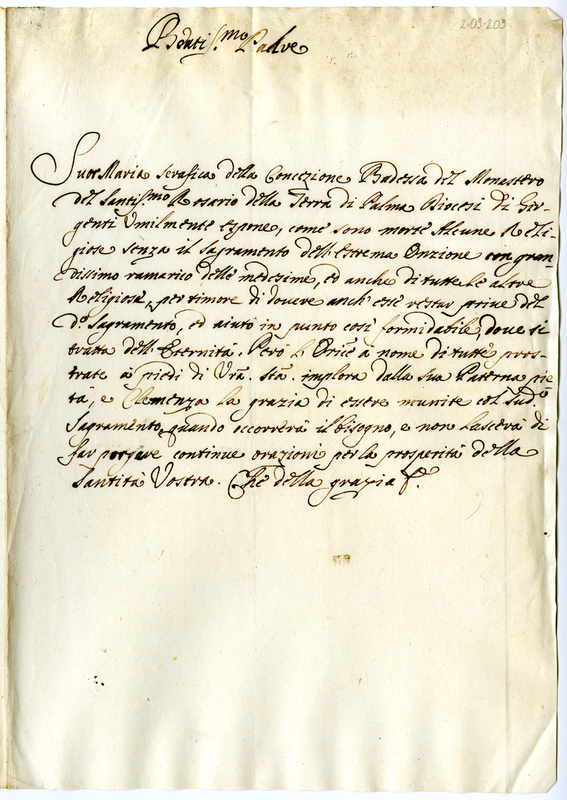 2-03-203
Beatis.mo Padre
Suor Maria Serafica della Concezione Badessa del Monastero
del Santissmo Rosario della Terra di Palma Diocesi di Gir-
genti Umilmente espone, come sono morte Alcune Reli-
giose senza il Sagramento dell'Estrema Onzione con gran-
dissimo ramarico delle medesime, ed anche di tutte le altre
Religiose, per timore di dovere anch'esse restar prive del
d.o Sagramento, ed aiuto in punto così formidabile, dove si
tratta dell'Eternità. Però l'Orice à nome di tutte pros-
trate à piedi di Vrã. Stà. implora dalla sua Paterna pie-
tà, e Clemenza la grazia di essere munite col Sud.o
Sagramento quando occorrerà il bisogno, e non lascerà di
far porgere continue orazioni per la prosperità della
Santità Vostra. Che della grazia